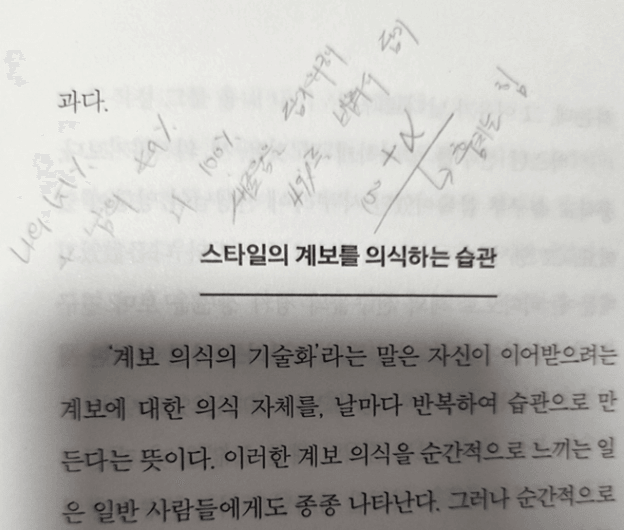 과다.
나의
남의
100%
+α
스타일의 계보를 의식하는 습관
'계보 의식의 기술화'라는 말은 자신이 이어받으려는
계보에 대한 의식 자체를, 날마다 반복하여 습관으로 만
든다는 뜻이다. 이러한 계보 의식을 순간적으로 느끼는 일
은 일반 사람들에게도 종종 나타난다. 그러나 순간적으로